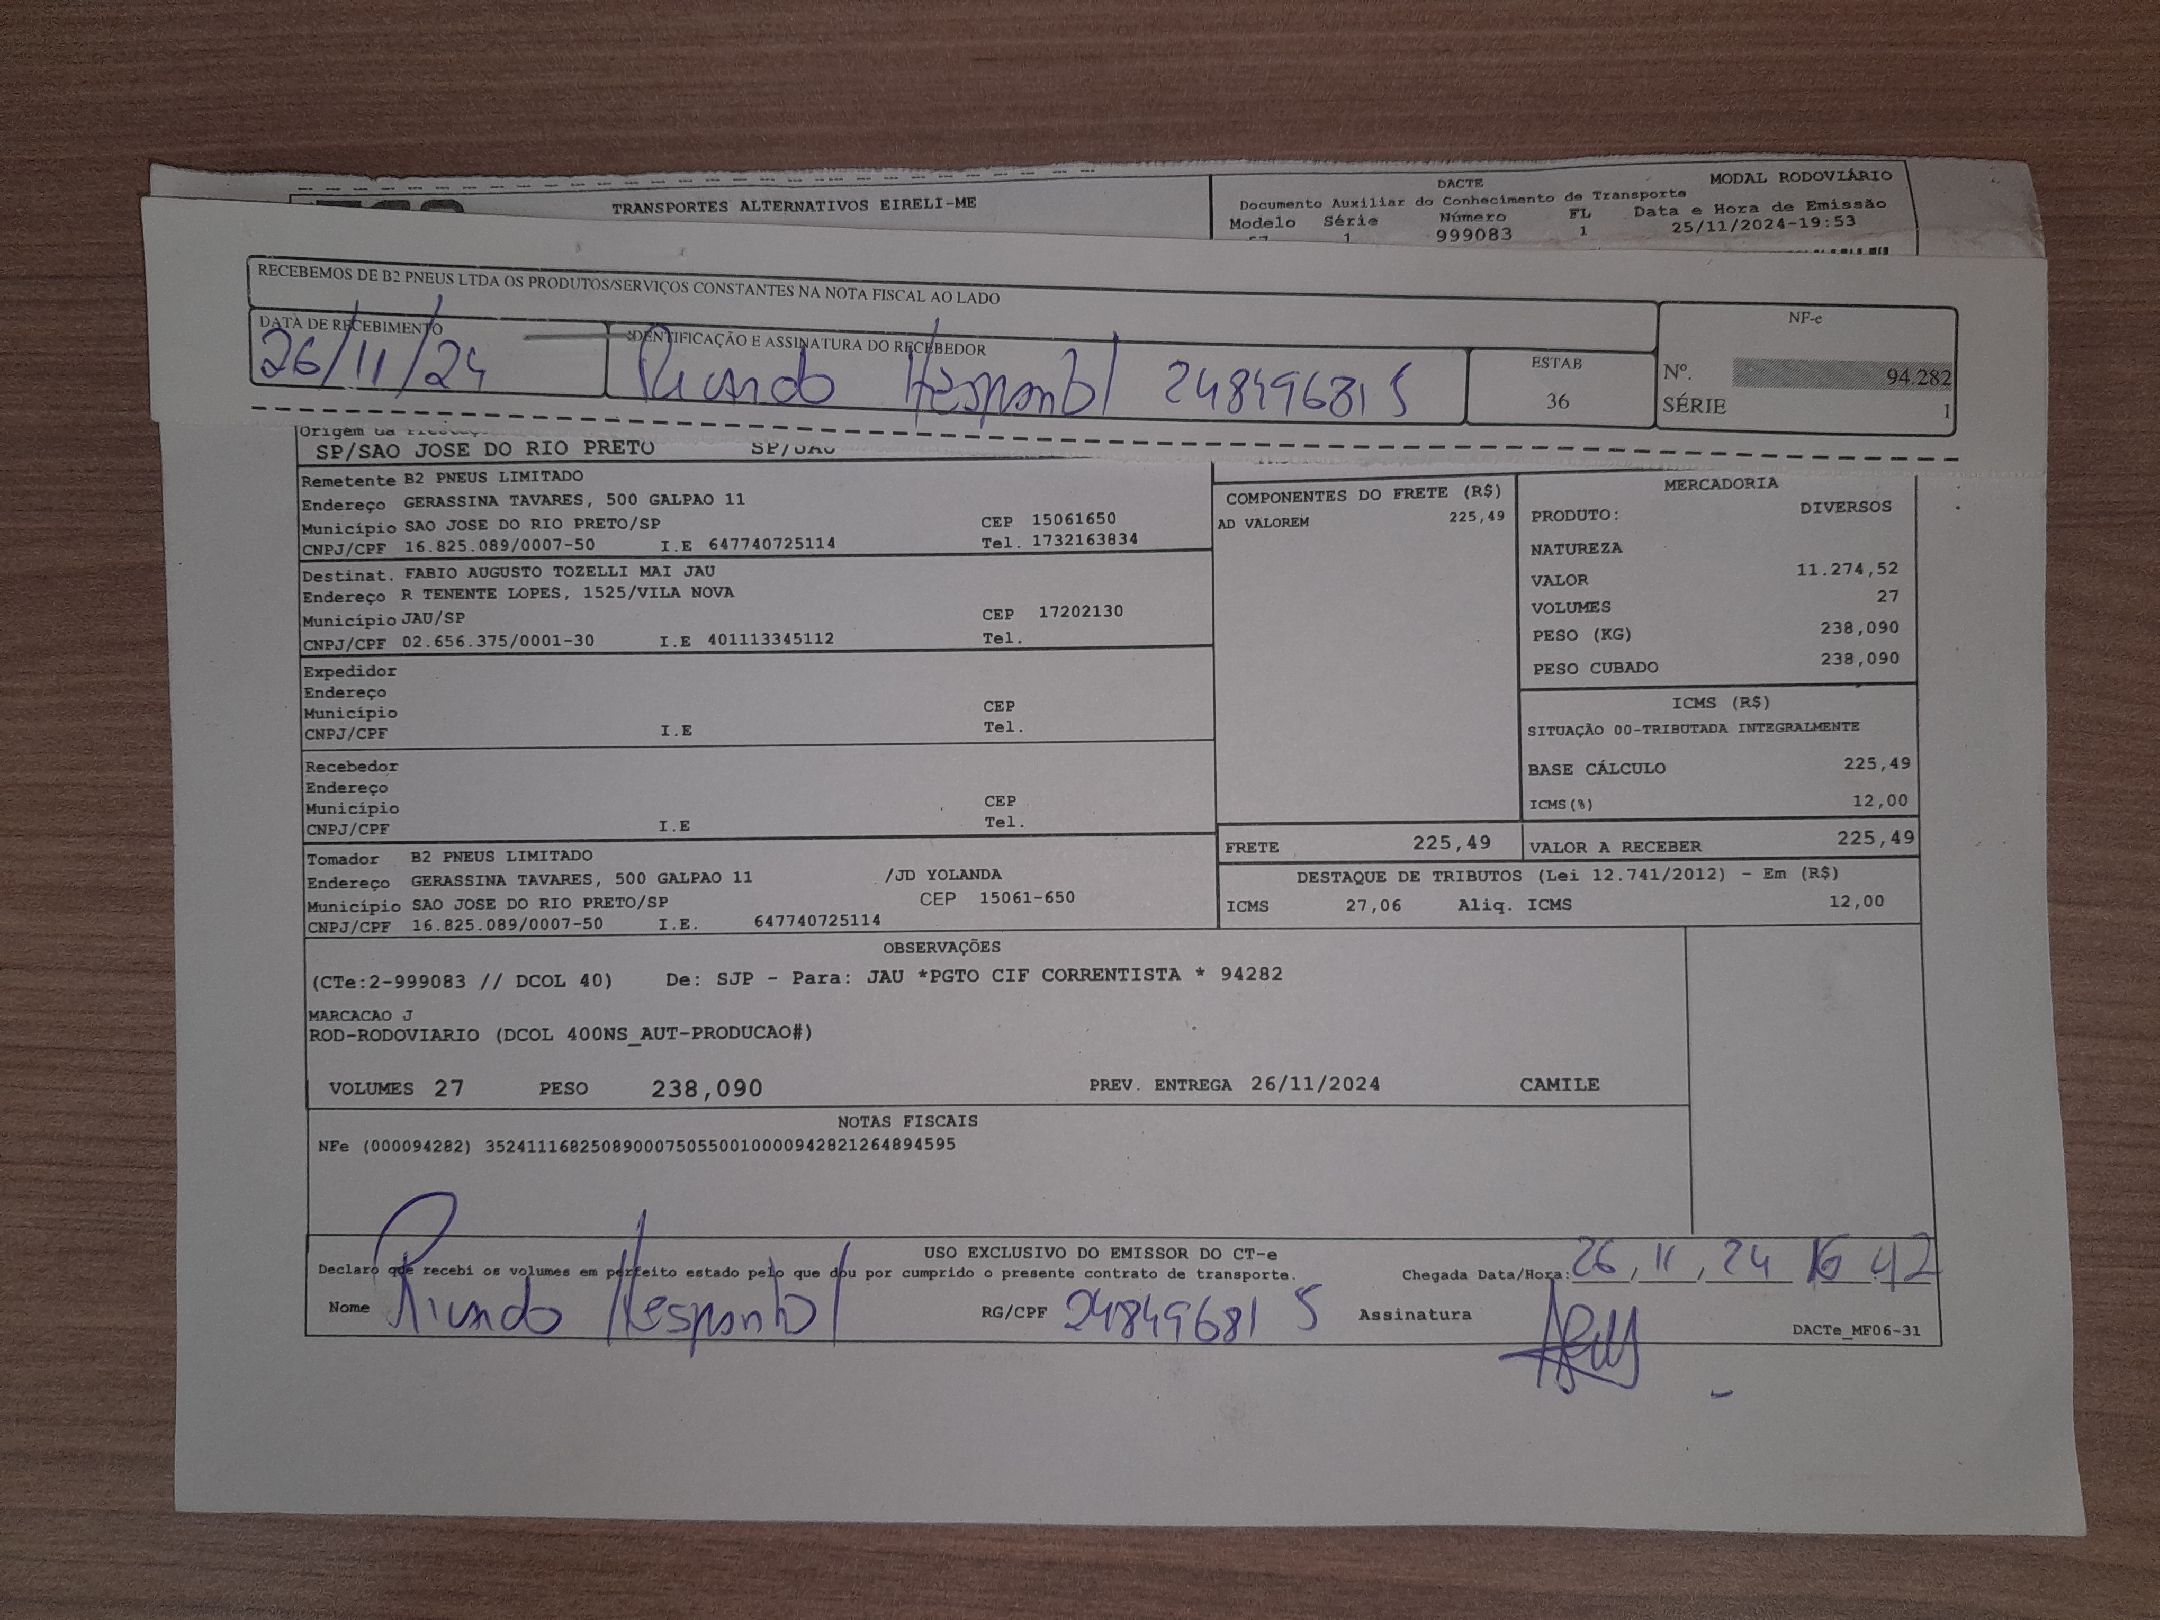 TRANSPORTES ALTERNATIVOS EIRELI-ME
DACTE
MODAL RODOVIÁRIO
Documento Auxiliar do Conhecimento de Transporte
Modelo Série Número FL Data e Hora de Emissão
1 999083 1 25/11/2024-19:53
RECEBEMOS DE B2 PNEUS LTDA OS PRODUTOS/SERVIÇOS CONSTANTES NA NOTA FISCAL AO LADO
DATA DE RECEBIMENTO
26/11/24
IDENTIFICAÇÃO E ASSINATURA DO RECEBEDOR
Ricardo Hespanhol 248496815
ESTAB
36
NF-e
Nº. 94.282
SÉRIE 1
Origem da
SP/SAO JOSE DO RIO PRETO SP/JAU
Remetente B2 PNEUS LIMITADO
Endereço GERASSINA TAVARES, 500 GALPAO 11
Município SAO JOSE DO RIO PRETO/SP CEP 15061650
CNPJ/CPF 16.825.089/0007-50 I.E 647740725114 Tel. 1732163834
Destinat. FABIO AUGUSTO TOZELLI MAI JAU
Endereço R TENENTE LOPES, 1525/VILA NOVA
Município JAU/SP CEP 17202130
CNPJ/CPF 02.656.375/0001-30 I.E 401113345112 Tel.
Expedidor
Endereço
Município CEP
CNPJ/CPF I.E Tel.
Recebedor
Endereço
Município CEP
CNPJ/CPF I.E Tel.
Tomador B2 PNEUS LIMITADO
Endereço GERASSINA TAVARES, 500 GALPAO 11 /JD YOLANDA
Município SAO JOSE DO RIO PRETO/SP CEP 15061-650
CNPJ/CPF 16.825.089/0007-50 I.E. 647740725114
COMPONENTES DO FRETE (R$)
AD VALOREM 225,49
MERCADORIA
PRODUTO: DIVERSOS
NATUREZA
VALOR 11.274,52
VOLUMES 27
PESO (KG) 238,090
PESO CUBADO 238,090
ICMS (R$)
SITUAÇÃO 00-TRIBUTADA INTEGRALMENTE
BASE CÁLCULO 225,49
ICMS(%) 12,00
FRETE 225,49 VALOR A RECEBER 225,49
DESTAQUE DE TRIBUTOS (Lei 12.741/2012) - Em (R$)
ICMS 27,06 Aliq. ICMS 12,00
OBSERVAÇÕES
(CTe:2-999083 // DCOL 40) De: SJP - Para: JAU *PGTO CIF CORRENTISTA * 94282
MARCACAO J
ROD-RODOVIARIO (DCOL 400NS_AUT-PRODUCAO#)
VOLUMES 27 PESO 238,090 PREV. ENTREGA 26/11/2024 CAMILE
NOTAS FISCAIS
NFe (000094282) 35241116825089000750550010000942821264894595
USO EXCLUSIVO DO EMISSOR DO CT-e
Declaro que recebi os volumes em perfeito estado pelo que dou por cumprido o presente contrato de transporte. Chegada Data/Hora: 26, 11, 24 16 42
Nome Ricardo Hespanhol RG/CPF 248496815 Assinatura
DACTe_MF06-31